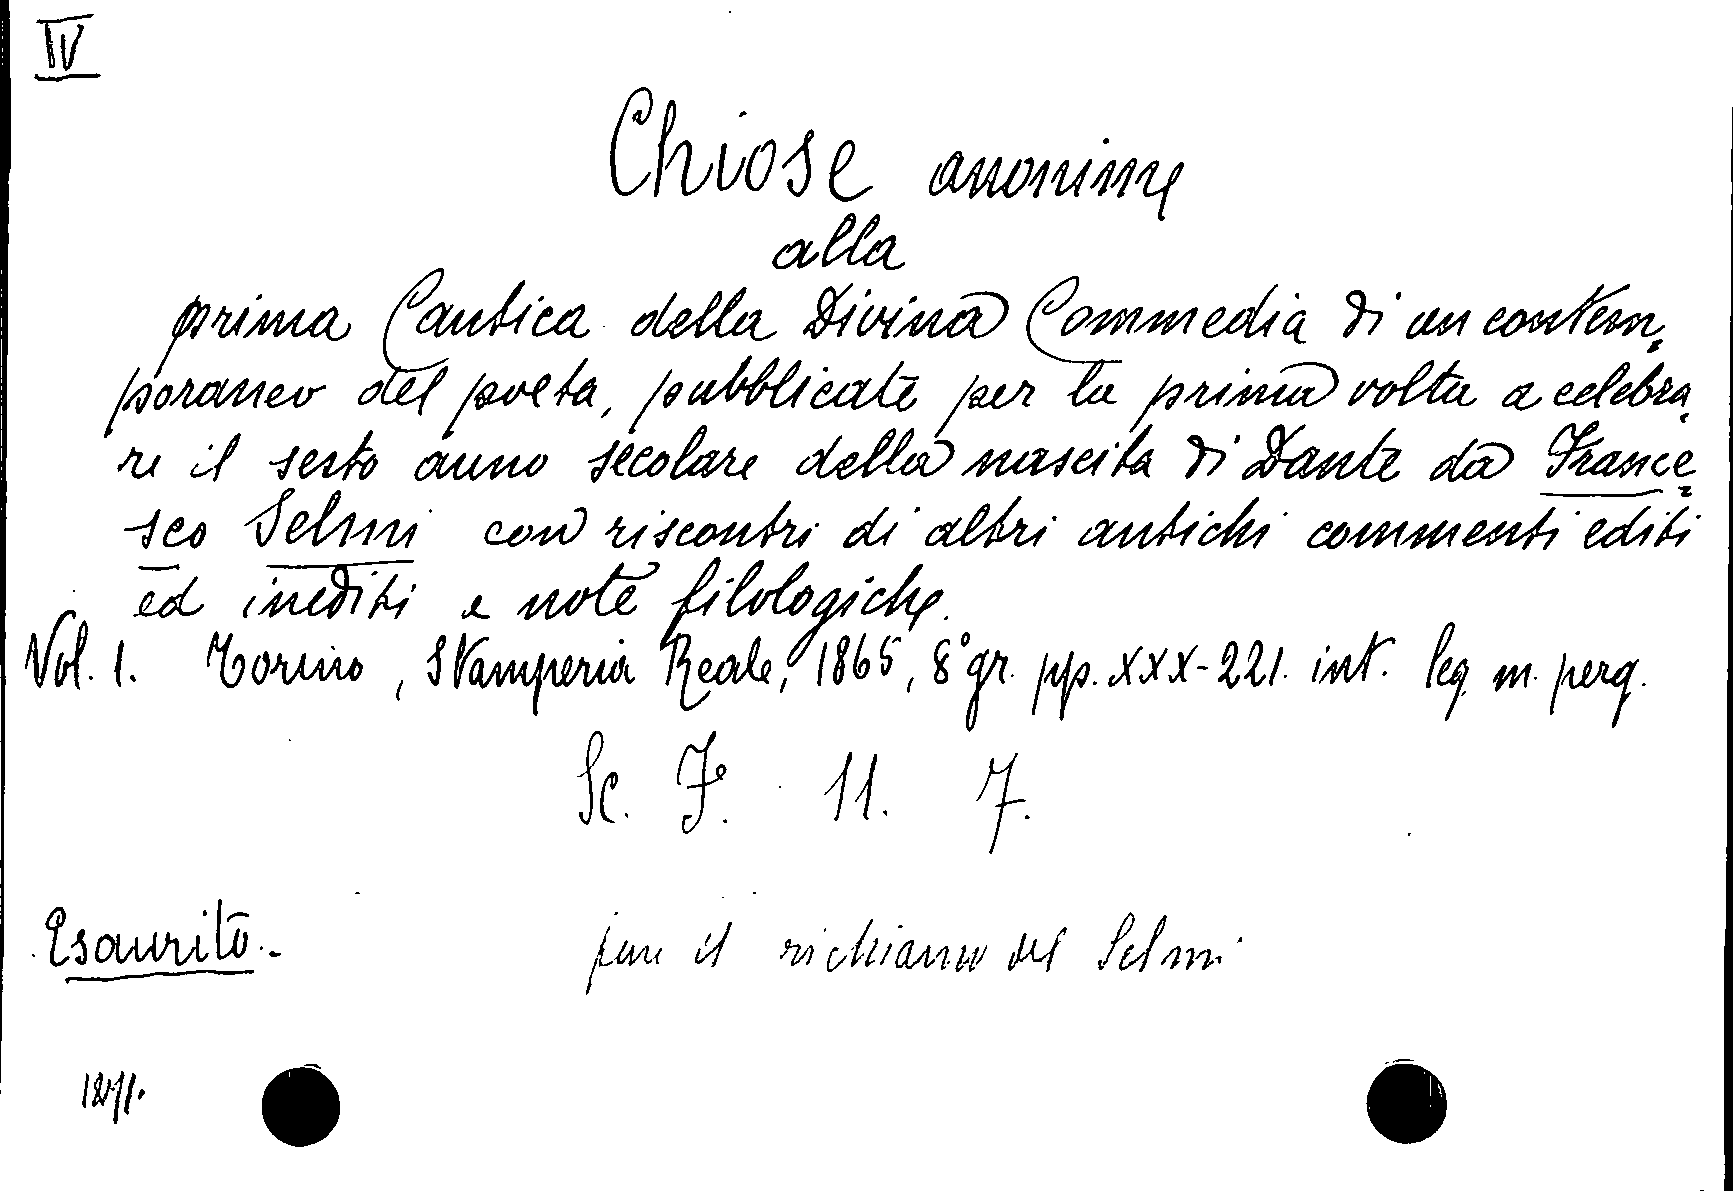 IV
Chiose anonime
alla
prima Cantica della Divina Commedia di un contem=
poraneo del poeta, pubblicate per la prima volta a celebra
re il sesto anno secolare della nascita di Dante da France=
sco Selmi con riscontri di altri antichi commenti editi
ed inediti e note filologiche.
Vol. 1. Torino, Stamperia Reale, 1865, 8° gr. pp. XXX-221. int. leg. m. perg.
Sc. F. 11. 7.
Esaurito.-
il richiamo del Selmi